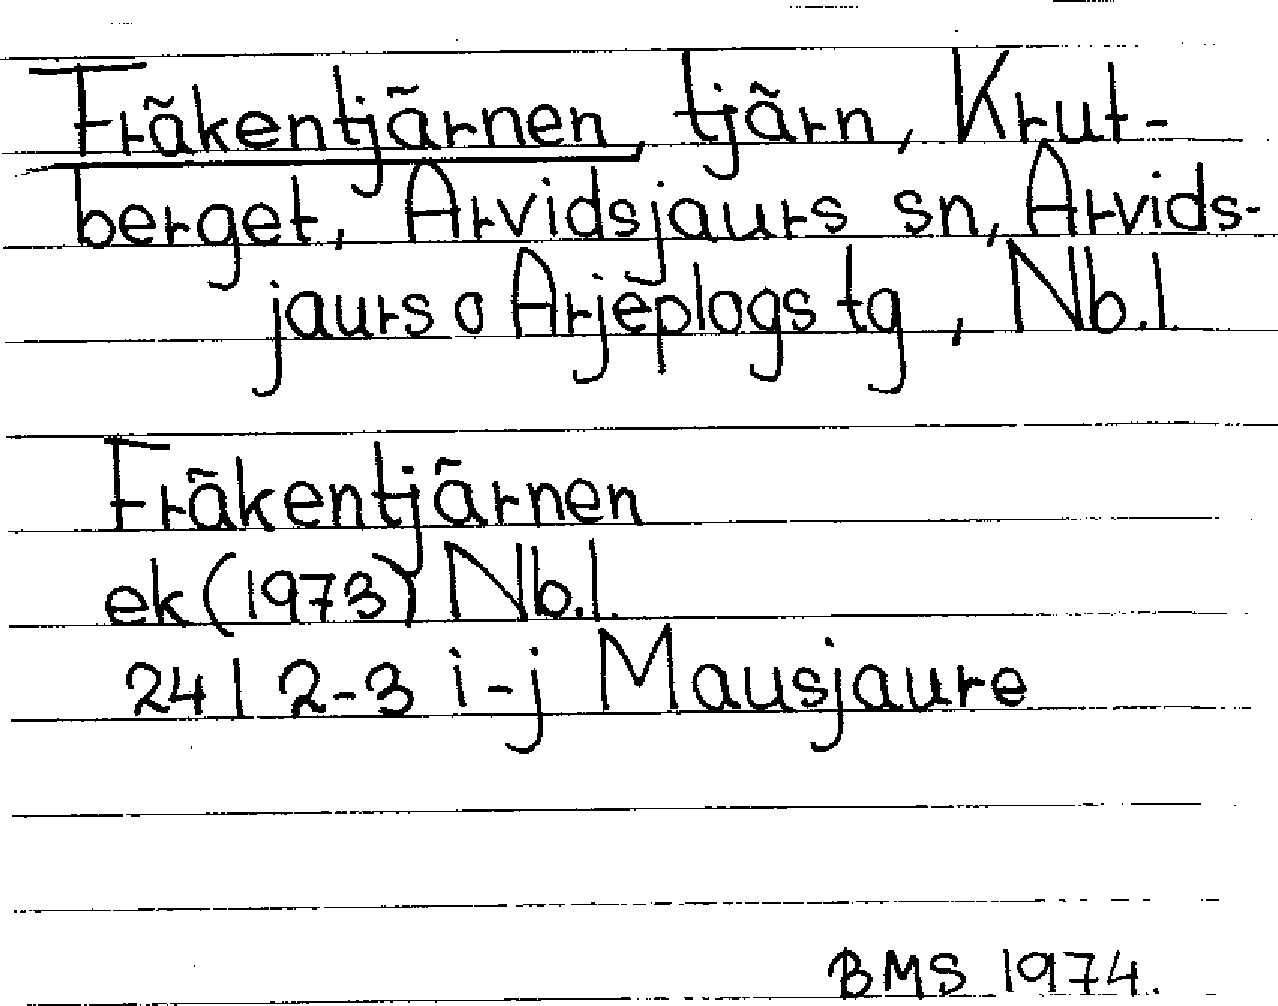 Fräkentjärnen, tjärn, Krut-
berget, Arvidsjaurs sn, Arvids-
jaurs o Arjeplogs tg, Nb.l.
Fräkentjärnen
ek (1973) Nb.l.
24 I 2-3 i-j Mausjaure
BMS 1974.